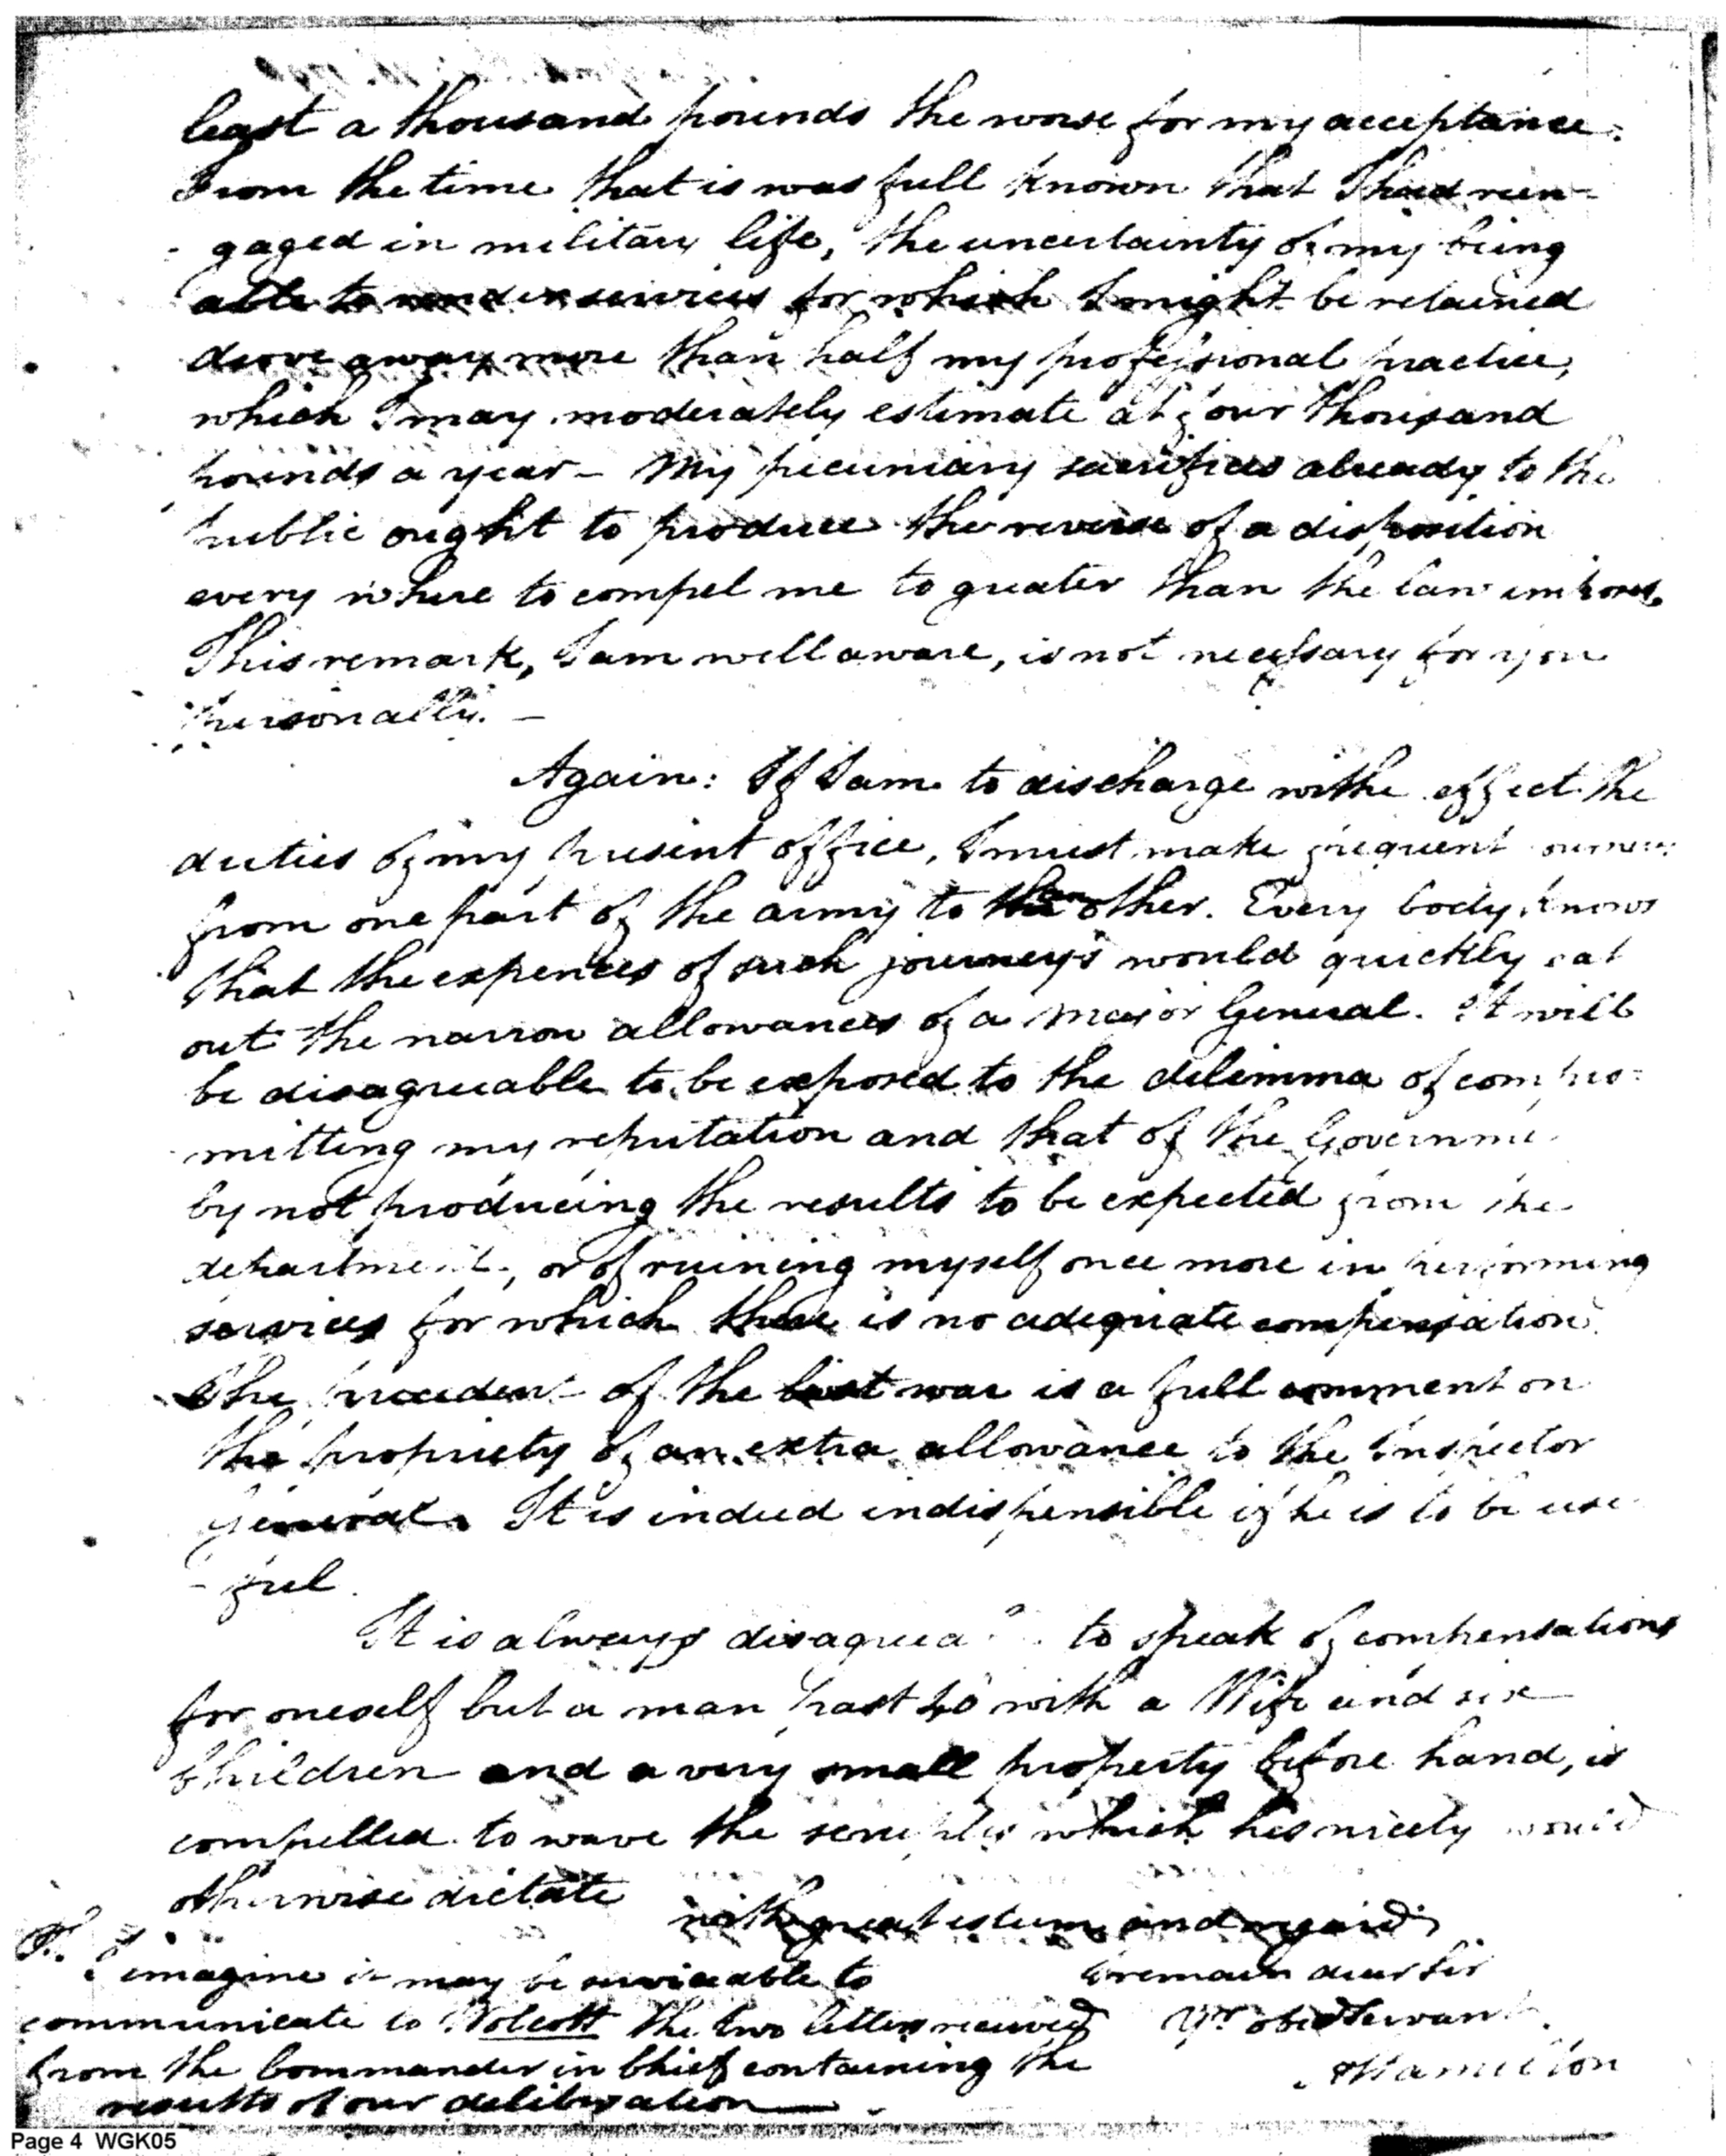 least a thousand pounds the worse for my acceptance.
From the time that is was full known that I had reen-
gaged in military life, the uncertainty of my being
able to render services for which I might be retained
drove away more than half my professional practice,
which I may moderately estimate at four thousand
pounds a year – My pecuniary sacrifices already to the
public ought to produce the reverse of a disposition
every where to compel me to greater than the law imposes.
This remark, I am well aware, is not necessary for you
personally. –
Again: If I am to discharge withe effect the
duties of my present office, I must make frequent
from one part of the army to other. Every body knows
that the expences of such journeys would quickly eat
out the narrow allowances of a Major General. It will
be disagreeable to be exposed to the dilemma of compro=
mitting my reputation and that of the Governme
by not producing the results to be expected from the
department, or of ruining myself once more in performing
services for which there is no adequate compensation.
The precedent of the last war is a full comment on
the propriety of an extra allowance to the Inspector
General. It is indeed indispensible if he is to be use
-ful.
It is always disagrea to speak of compensations
for oneself but a man past 40 with a Wife and six
Children and a very small property before hand, is
compelled to wave the scruples which his nicety would
otherwise dictate
with great esteem and regard
I remain dear Sir
Yr obed Servant
AHamilton
P. I imagine it may be serviceable to
communicate to Wolcott the two letters received
from the Commander in Chief containing the
results of our deliberation —
Page 4 WGK05